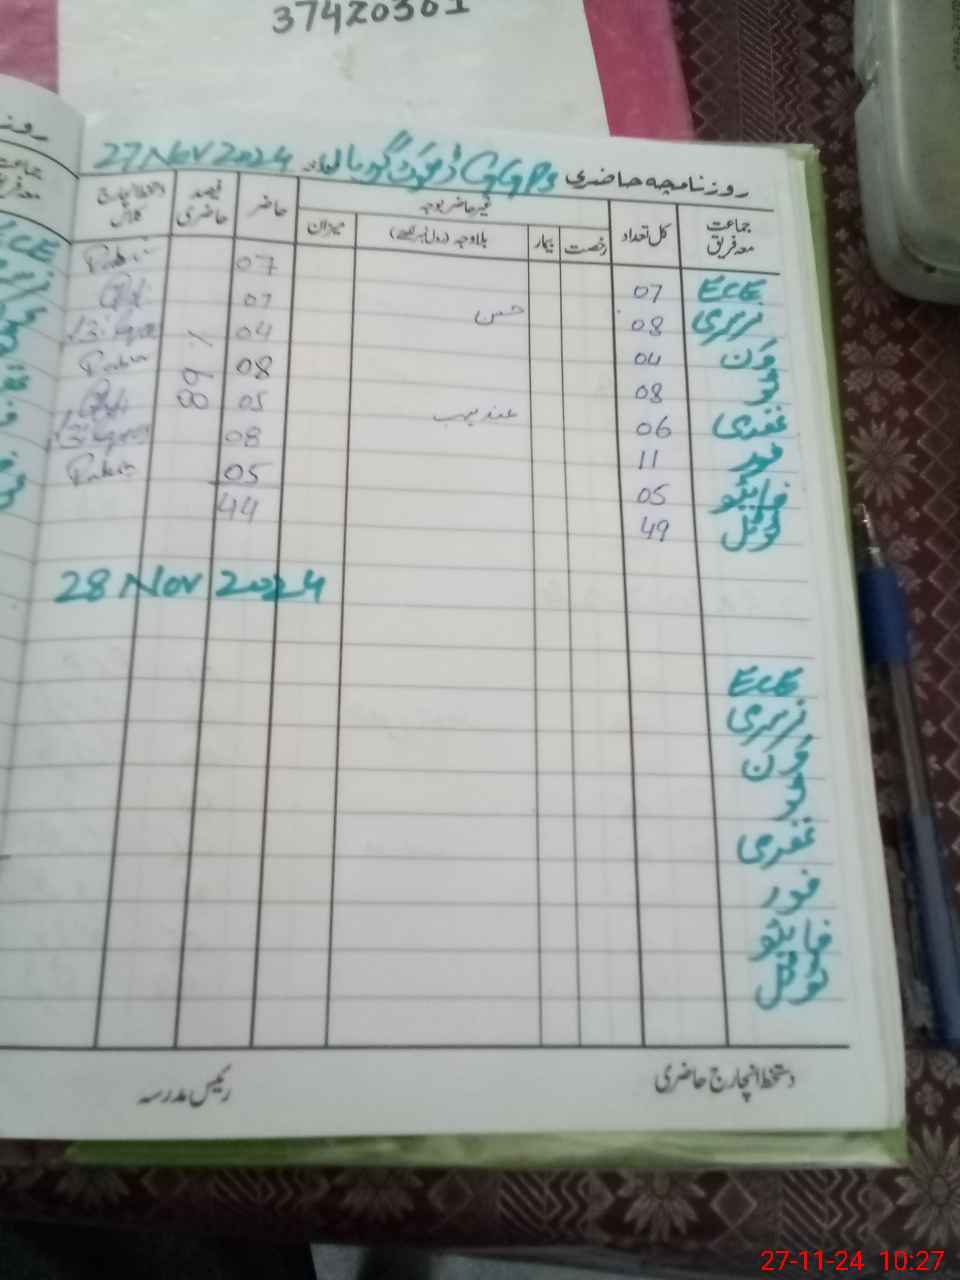 37420301
روزنامچہ حاضری GGPS ڈھوک گوہالہ 27 Nov 2024
جماعت معہ فریق کل تعداد غیر حاضر بوجہ حاضر فیصد حاضری دستخط انچارج کلاس
رخصت بیمار بلاوجہ (رول نمبر لکھیے) میزان
ECE 07 07
نرسری 08 07
ون 04 04
ٹو 08 08
تھری 06 عندلیب 05
فور 11 08
فائیو 05 05
ٹوٹل 49 44
89%
28 Nov 2024
ECE
نرسری
ون
ٹو
تھری
فور
فائیو
ٹوٹل
دستخط انچارج حاضری رئیس مدرسہ
27-11-24 10:27